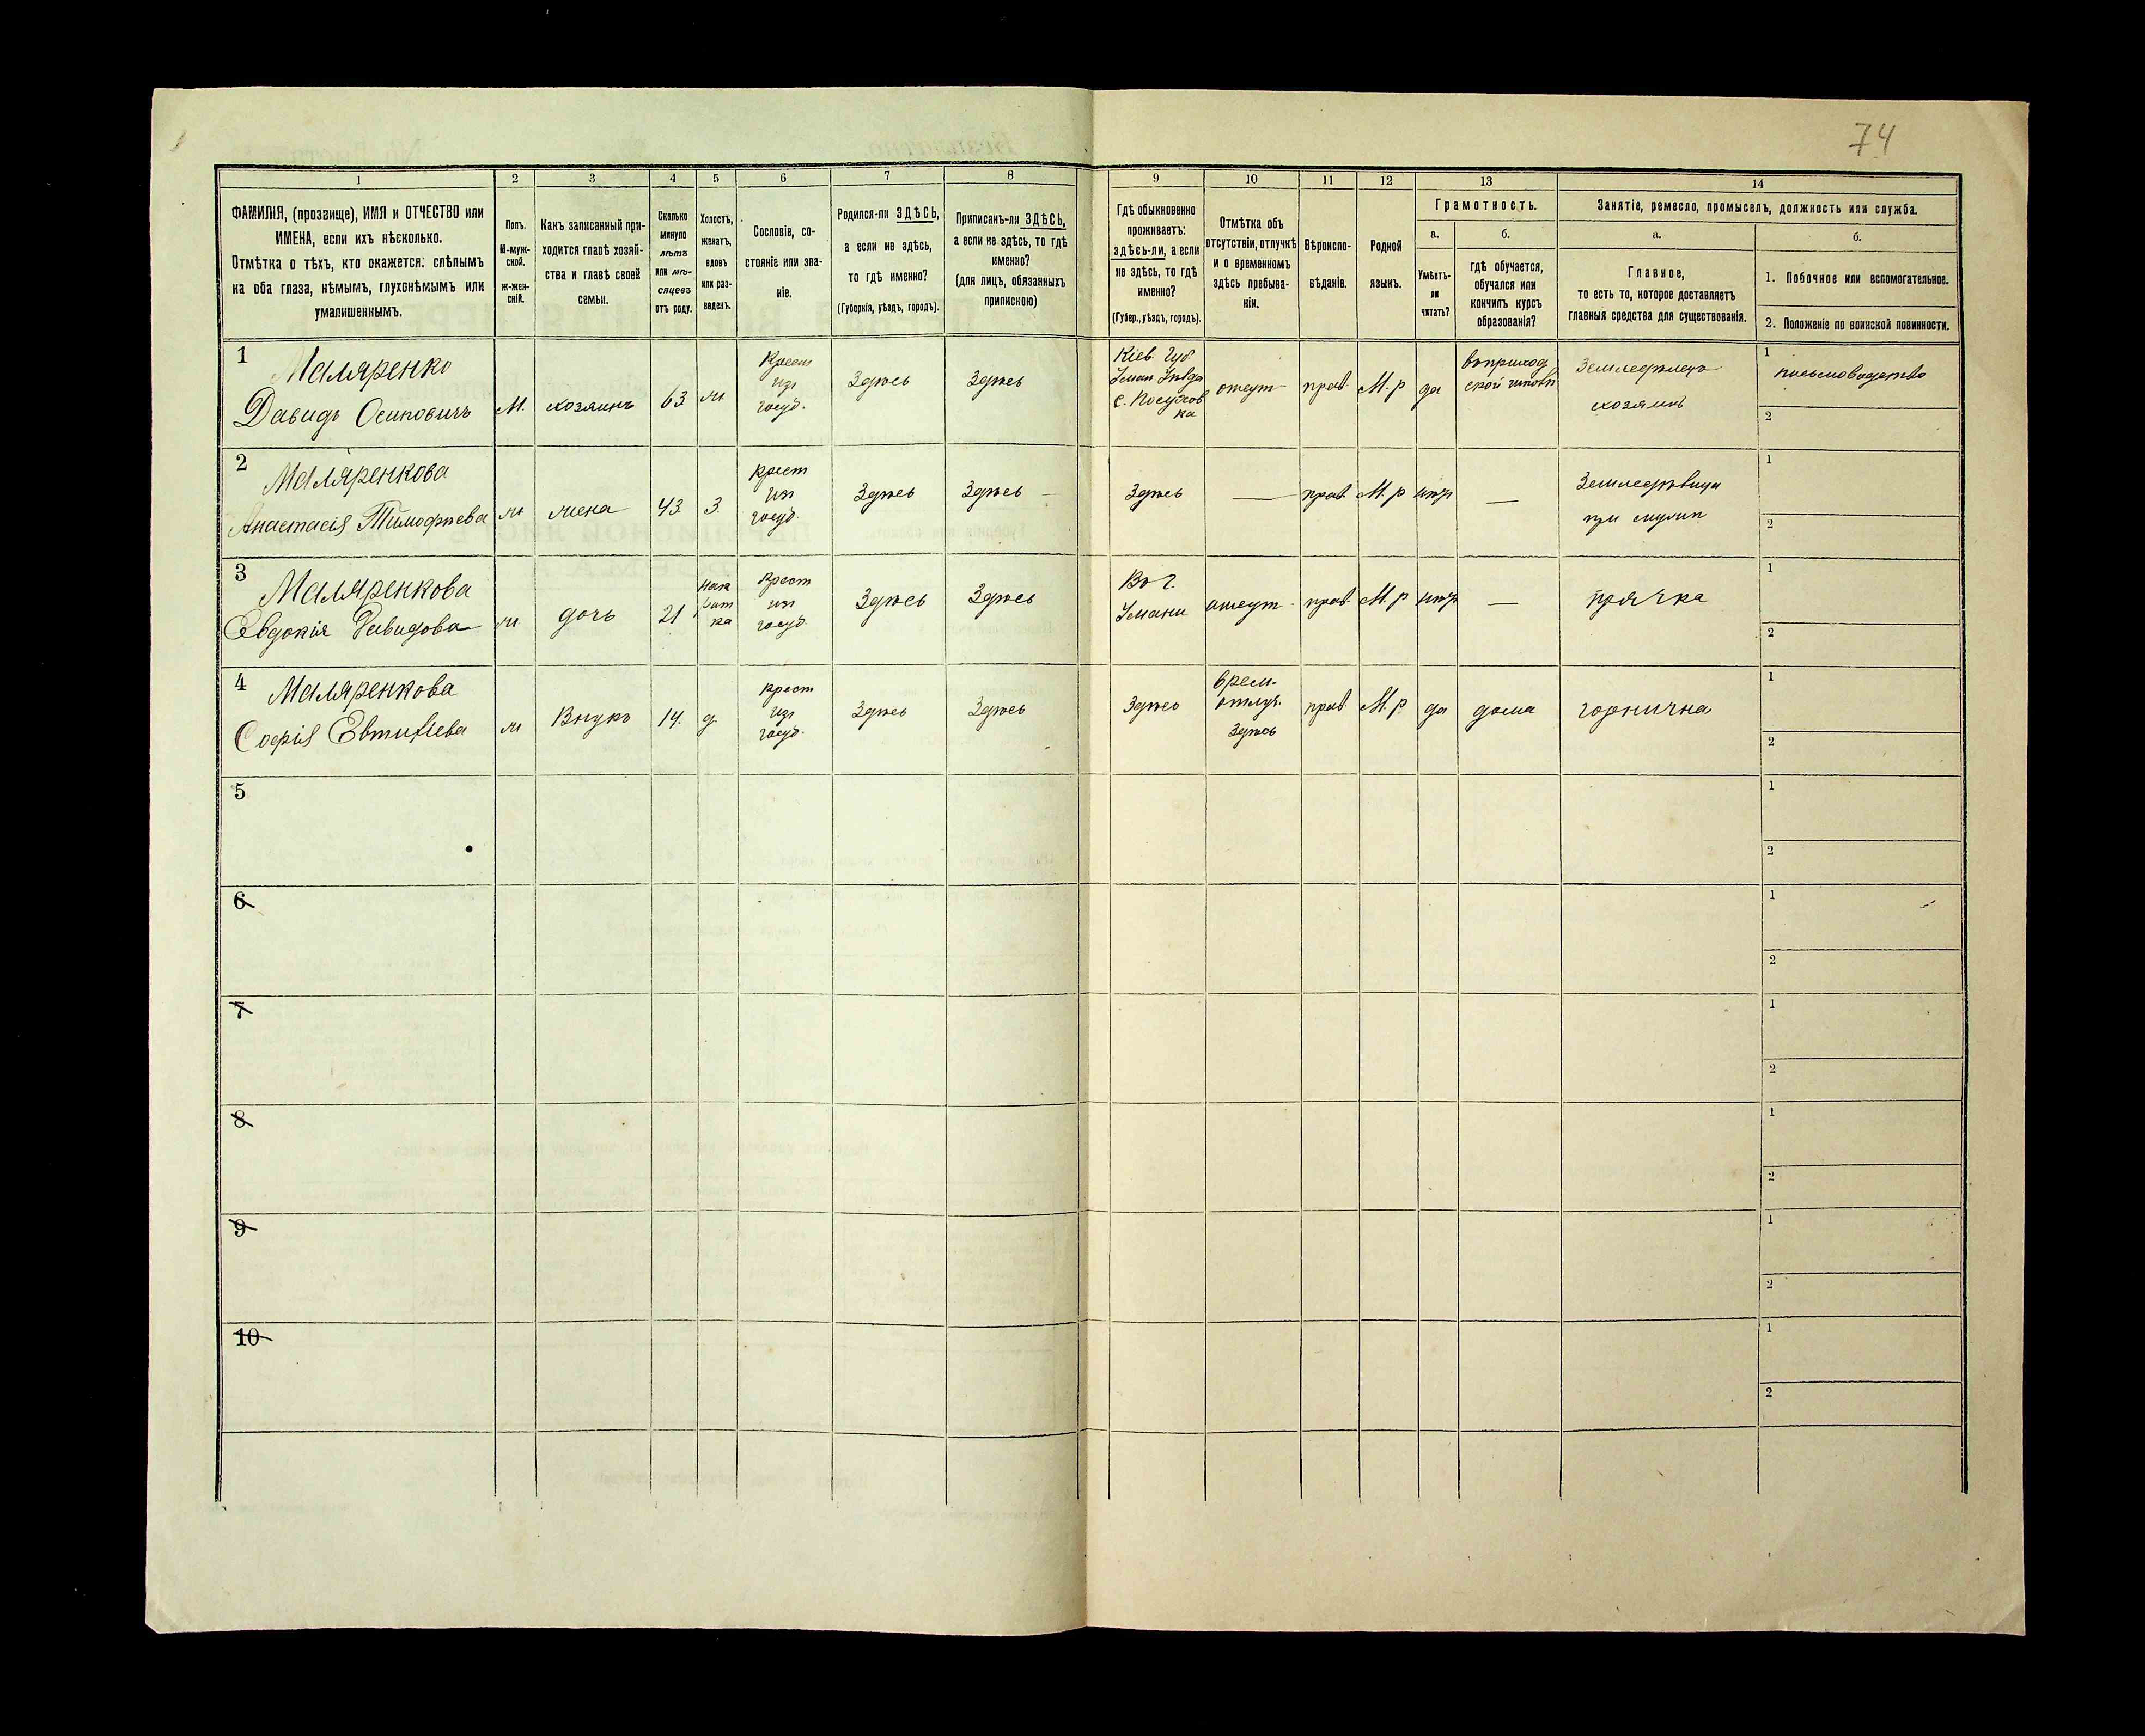 74
1 2 3 4 5 6 7 8 9 10 11 12 13 14
ФАМИЛІЯ, (прозвище), ИМЯ и ОТЧЕСТВО или
ИМЕНА, если ихъ нѣсколько.
Отмѣтка о тѣхъ, кто окажется: слѣпымъ
на оба глаза, нѣмымъ, глухонѣмымъ или
умалишеннымъ.
Полъ.
М-муж-
ской.
Ж-жен-
скій.
Какъ записанный при-
ходится главѣ хозяй-
ства и главѣ своей
семьи.
Сколько
минуло
лѣтъ
или мѣ-
сяцевъ
отъ роду.
Холостъ,
женатъ,
вдовъ
или раз-
веденъ.
Сословіе, со-
стояніе или зва-
ніе.
Родился-ли ЗДѢСЬ,
а если не здѣсь,
то гдѣ именно?
(Губернія, уѣздъ, городъ).
Приписанъ-ли ЗДѢСЬ,
а если не здѣсь, то гдѣ
именно?
(для лицъ, обязанныхъ
припискою)
Гдѣ обыкновенно
проживаетъ:
здѣсь-ли, а если
не здѣсь, то гдѣ
именно?
(Губер., уѣздъ, городъ).
Отмѣтка объ
отсутствіи, отлучкѣ
и о временномъ
здѣсь пребыва-
ніи.
Вѣроиспо-
вѣданіе.
Родной
языкъ.
Грамотность.
а.
Умѣетъ-
ли
читать?
б.
гдѣ обучается,
обучался или
кончилъ курсъ
образованія?
Занятіе, ремесло, промыселъ, должность или служба.
а.
Главное,
то есть то, которое доставляетъ
главныя средства для существованія.
б.
1. Побочное или вспомогательное.
2. Положеніе по воинской повинности.
1
Маляренко
Давидъ Осиповичъ
М.
хозяинъ
63
ж
Крест
изъ
госуд.
Здѣсь
Здѣсь
Кіев Губ
Уман Уѣзда
с. Посухов
ка
отсут
прав.
М. р
да
въ приход
ской школѣ
Земледѣлецъ
хозяинъ
1
письмоводство
2
2
Маляренкова
Анастасія Тимофѣева
ж
жена
43
З.
крест
изъ
госуд.
Здѣсь
Здѣсь —
Здѣсь
—
прав.
М. р
нѣтъ
—
Земледѣлица
при мужѣ
1
2
3
Маляренкова
Евдокія Давидова
ж
дочь
21
крест
изъ
госуд.
Здѣсь
Здѣсь
Въ г.
Умани
отсут
прав.
М. р
нѣтъ
—
прачка
1
2
4
Маляренкова
Софія Евтихіева
ж
Внука
14.
д.
крест
изъ
госуд.
Здѣсь
Здѣсь
Здѣсь
врем.
отлуч.
Здѣсь
прав.
М. р
да
дома
горнична
1
2
5
1
2
6
1
2
7
1
2
8
1
2
9
1
2
10
1
2